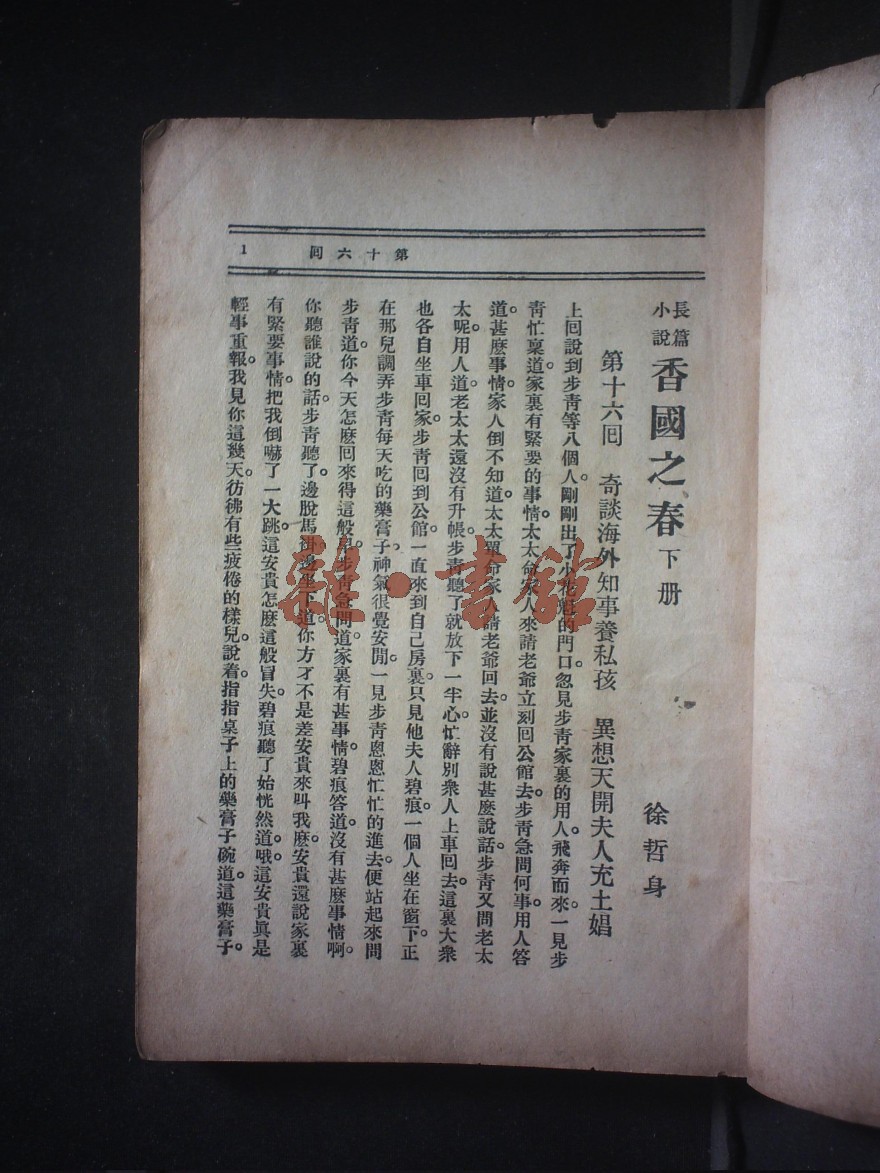 第十六回
1
長篇小說
香國之春 下册
徐哲身
第十六回 奇談海外知事養私孩 異想天開夫人充土娼
上回說到步青等八個人。剛剛出了小花魁的門口。忽見步青家裏的用人。飛奔而來。一見步
青忙稟道。家裏有緊要的事情。太太命家人來請老爺立刻回公館去。步青急問何事。用人答
道。甚麽事情。家人倒不知道。太太單命家人請老爺回去。並沒有說甚麽說話。步青又問老太
太呢。用人道。老太太還沒有升帳。步青聽了。就放下一半心。忙辭別衆人上車回去。這裏大衆
也各自坐車回家。步青回到公館。一直來到自己房裏。只見他夫人碧痕。一個人坐在窗下。正
在那兒調弄步青每天吃的藥膏子。神氣很覺安閒。一見步青恖恖忙忙的進去。便站起來問
步青道。你今天怎麽回來得這般早。步青急問道。家裏有甚事情。碧痕答道。沒有甚麽事情啊。
你聽誰說的話。步青聽了。邊脫馬褂邊坐下道。你方才不是差安貴來叫我麽。安貴還說家裏
有緊要事情。把我倒嚇了一大跳。這安貴怎麽這般冒失。碧痕聽了。始恍然道。哦。這安貴眞是
輕事重報。我見你這幾天。彷彿有些疲倦的樣兒。說着。指指桌子上的藥膏子碗道。這藥膏子。
雜·書館